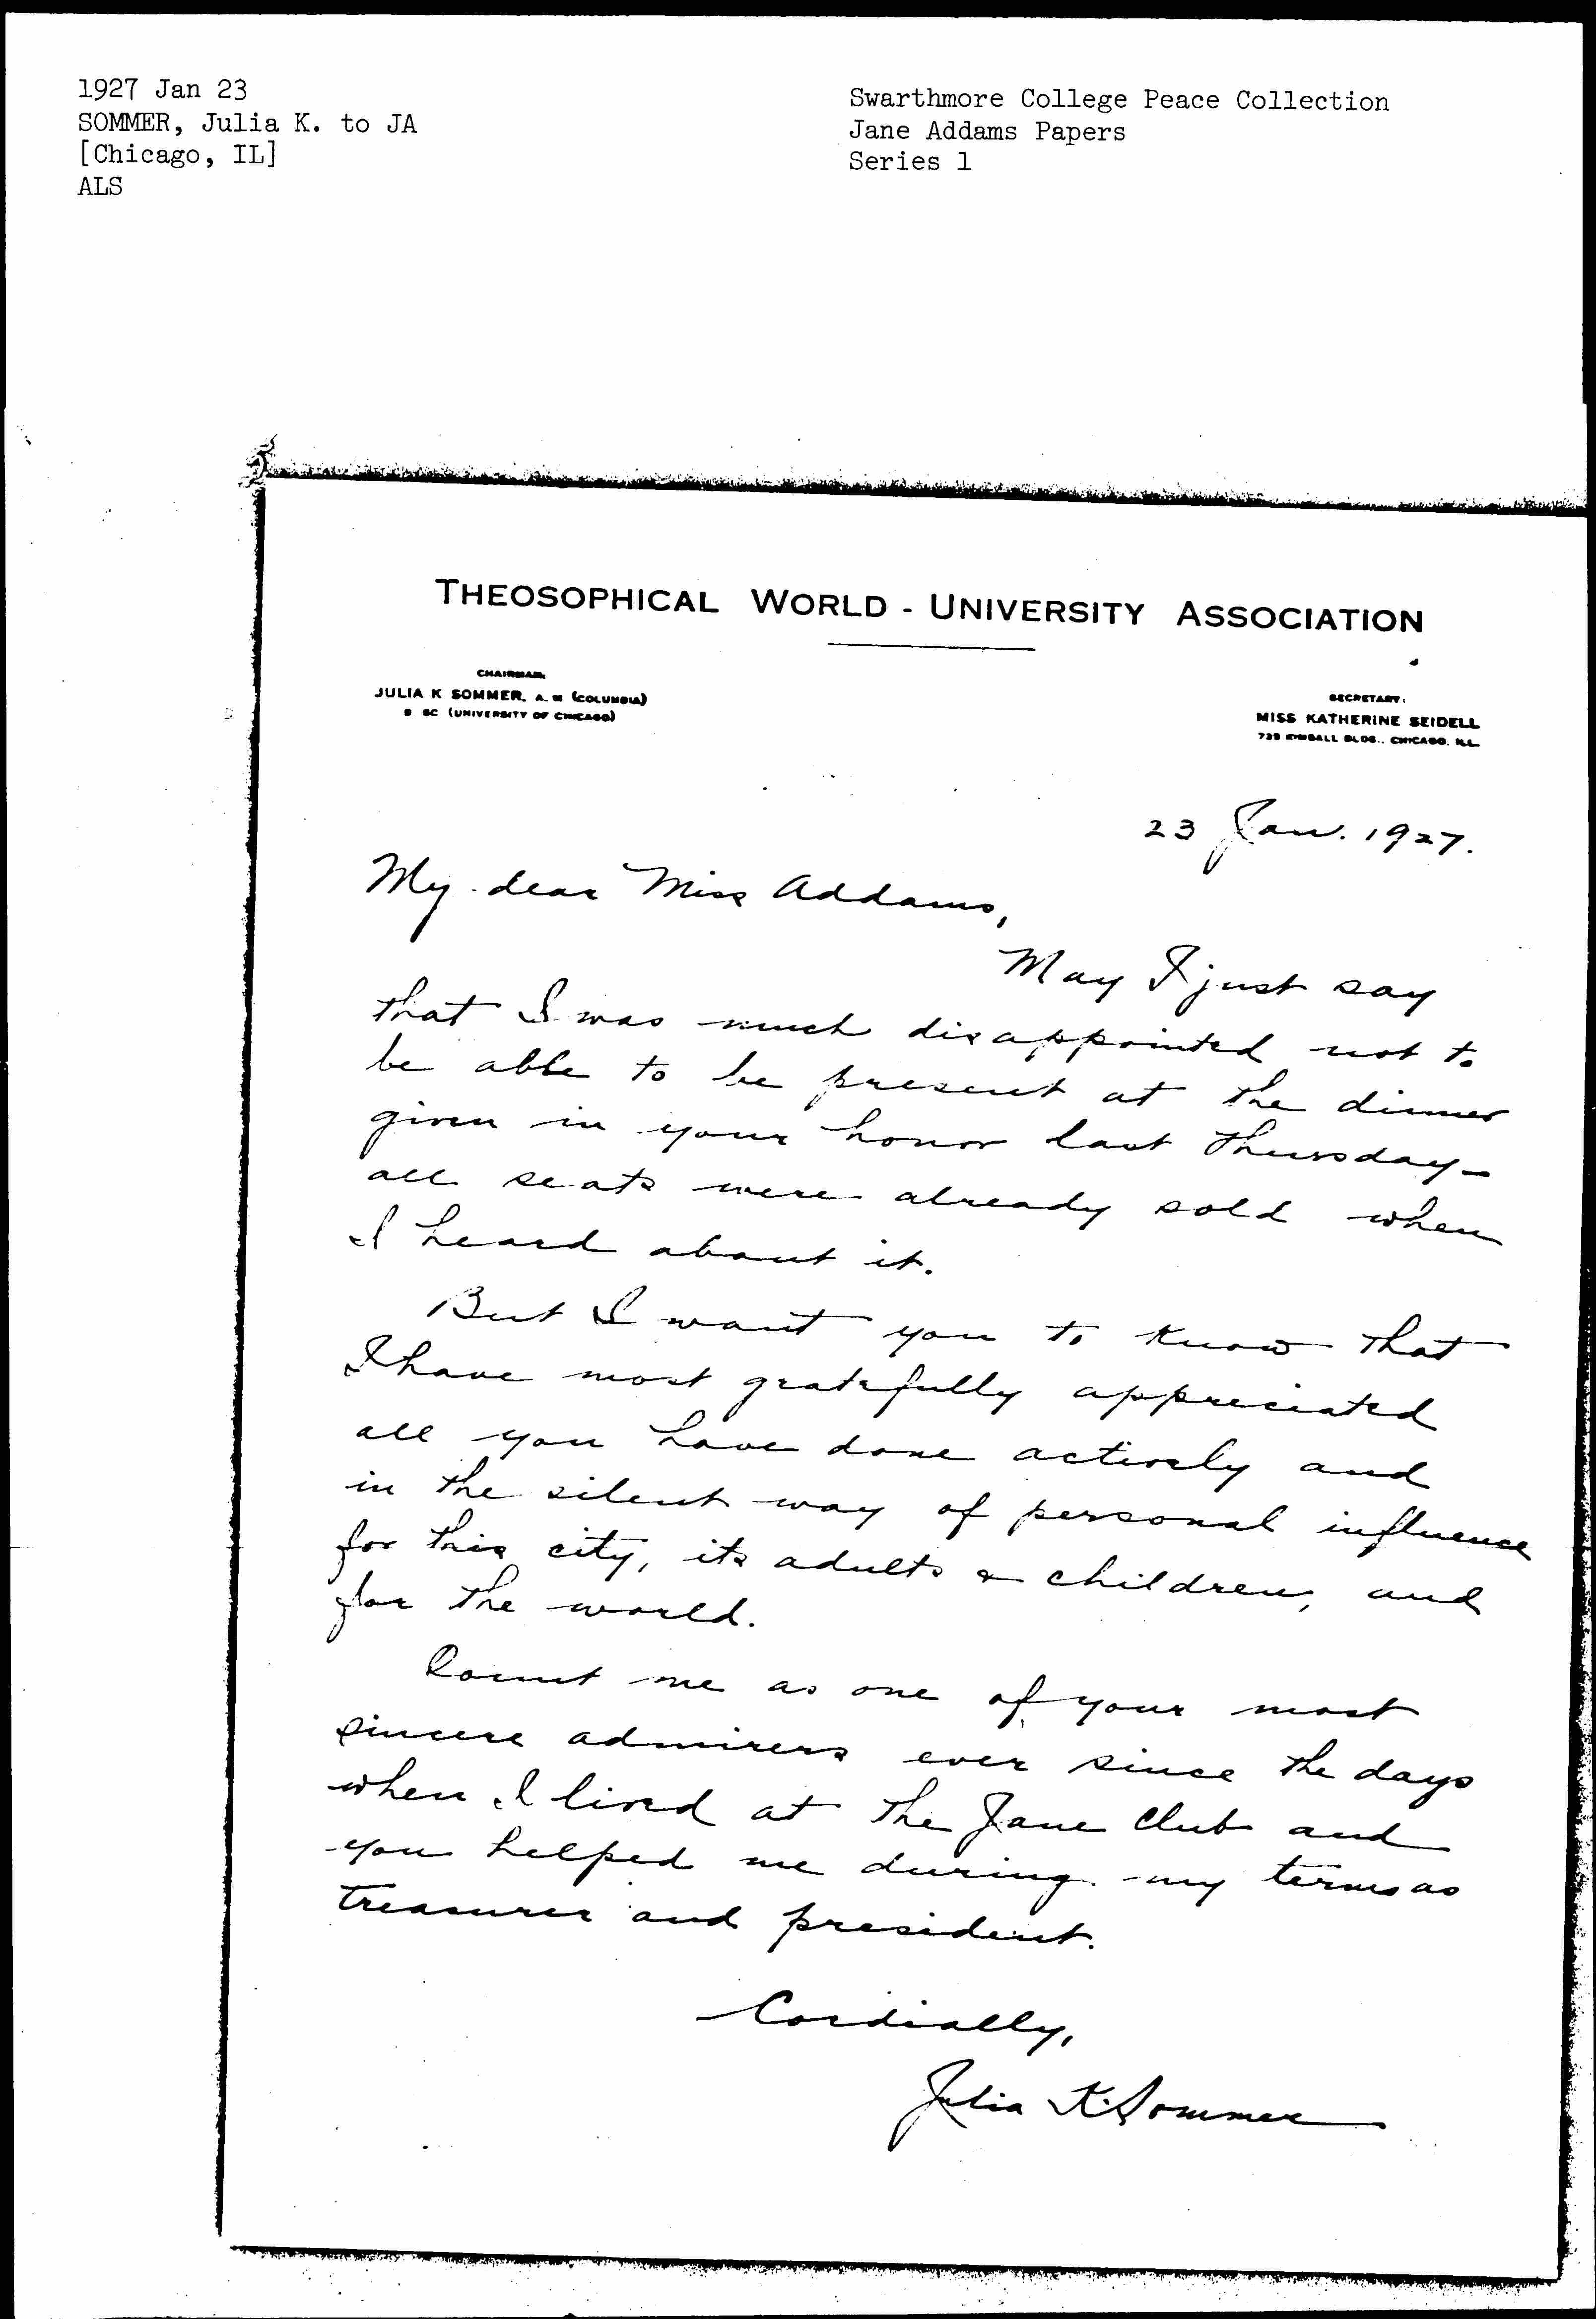 1927 Jan 23
SOMMER, Julia K. to JA
[Chicago, IL]
ALS
Swarthmore College Peace Collection
Jane Addams Papers
Series 1
THEOSOPHICAL WORLD - UNIVERSITY ASSOCIATION
CHAIRMAN:
JULIA K SOMMER, A. M (COLUMBIA)
B SC (UNIVERSITY OF CHICAGO)
SECRETARY:
MISS KATHERINE SEIDELL
739 KIMBALL BLDG., CHICAGO, ILL.
23 Jan. 1927.
My dear Miss Addams,
May I just say
that I was much disappointed not to
be able to be present at the dinner
given in your honor last Thursday—
all seats were already sold when
I heard about it.
But I want you to know that
I have most gratefully appreciated
all you have done actively and
in the silent way of personal influence
for this city, its adults & children, and
for the world.
Count me as one of your most
sincere admirers ever since the days
when I lived at the Jane Club and
you helped me during my terms as
treasurer and president.
Cordially,
Julia K. Sommer